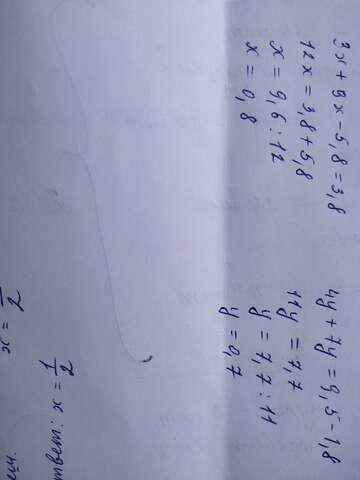 3x + 9x - 5,8 = 3,8
12x = 3,8 + 5,8
x = 9,6 : 12
x = 0,8
4y + 7y = 9,5 - 1,8
11y = 7,7
y = 7,7 : 11
y = 0,7
x = 2
твет: x = 1/2